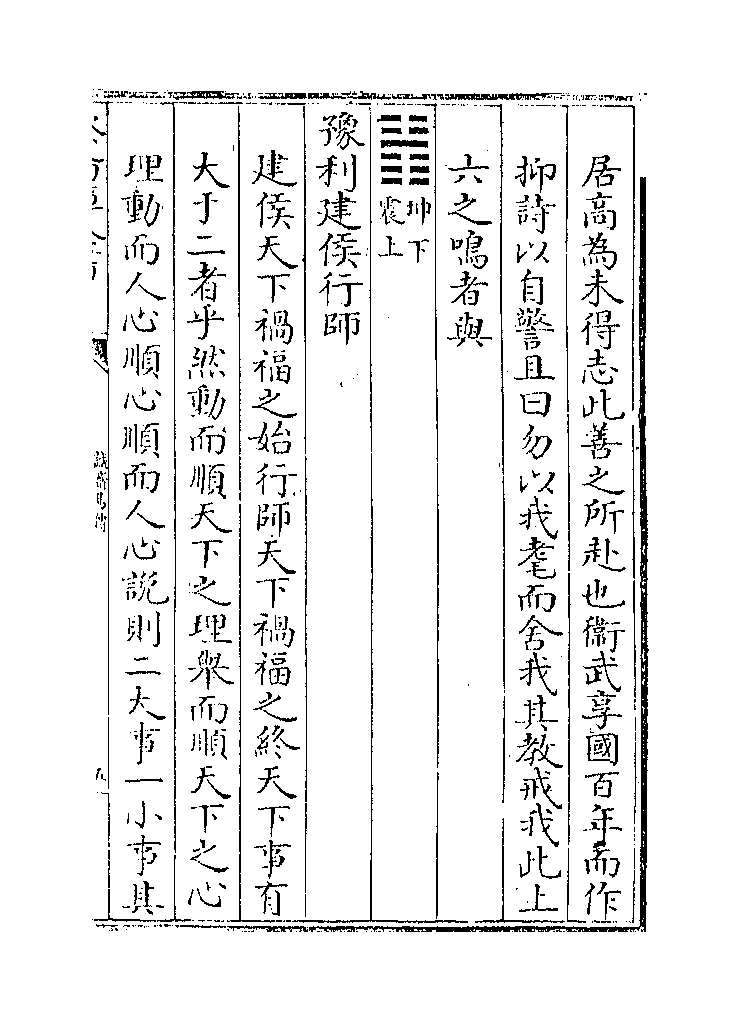 居高為未得志此善之所赴也衛武享國百年而作
抑詩以自警且曰勿以我耄而舍我其教戒我此上
六之鳴者與
坤下
震上
豫利建侯行師
建侯天下禍福之始行師天下禍福之終天下事有
大于二者乎然動而順天下之理衆而順天下之心
理動而人心順心順而人心說則二大事一小事其
誠齋易傳
五